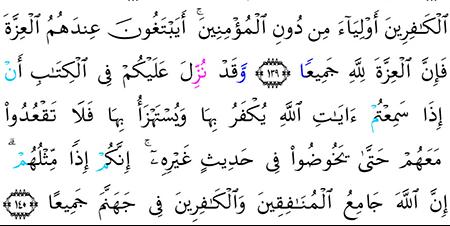 ٱلْكَٰفِرِينَ أَوْلِيَآءَ مِن دُونِ ٱلْمُؤْمِنِينَ ۚ أَيَبْتَغُونَ عِندَهُمُ ٱلْعِزَّةَ
فَإِنَّ ٱلْعِزَّةَ لِلَّهِ جَمِيعًا ﴿١٣٩﴾ وَقَدْ نُزِّلَ عَلَيْكُمْ فِى ٱلْكِتَٰبِ أَنْ
إِذَا سَمِعْتُمْ ءَايَٰتِ ٱللَّهِ يُكْفَرُ بِهَا وَيُسْتَهْزَأُ بِهَا فَلَا تَقْعُدُوا۟
مَعَهُمْ حَتَّىٰ يَخُوضُوا۟ فِى حَدِيثٍ غَيْرِهِۦٓ ۚ إِنَّكُمْ إِذًا مِّثْلُهُمْ ۗ
إِنَّ ٱللَّهَ جَامِعُ ٱلْمُنَٰفِقِينَ وَٱلْكَٰفِرِينَ فِى جَهَنَّمَ جَمِيعًا ﴿١٤٠﴾